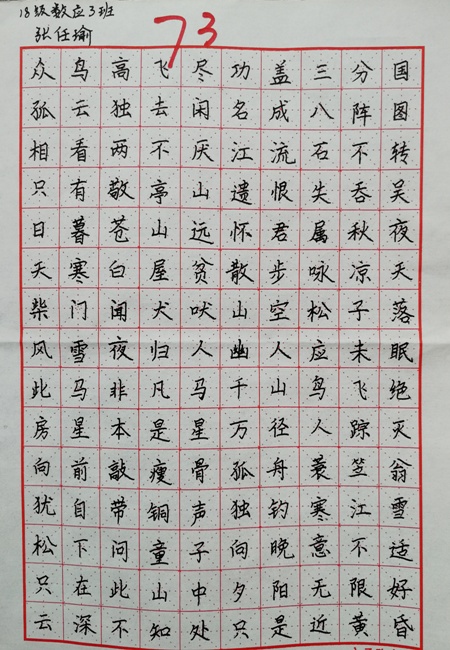 18级数应3班
张任瑜
73
众鸟高飞尽功盖三分国
孤云独去闲名成八阵图
相看两不厌江流石不转
只有敬亭山遗恨失吞吴
日暮苍山远怀君属秋夜
天寒白屋贫散步咏凉天
柴门闻犬吠山空松子落
风雪夜归人幽人应未眠
此马非凡马千山鸟飞绝
房星本是星万径人踪灭
向前敲瘦骨孤舟蓑笠翁
犹自带铜声独钓寒江雪
松下问童子向晚意不适
只在此山中夕阳无限好
云深不知处只是近黄昏